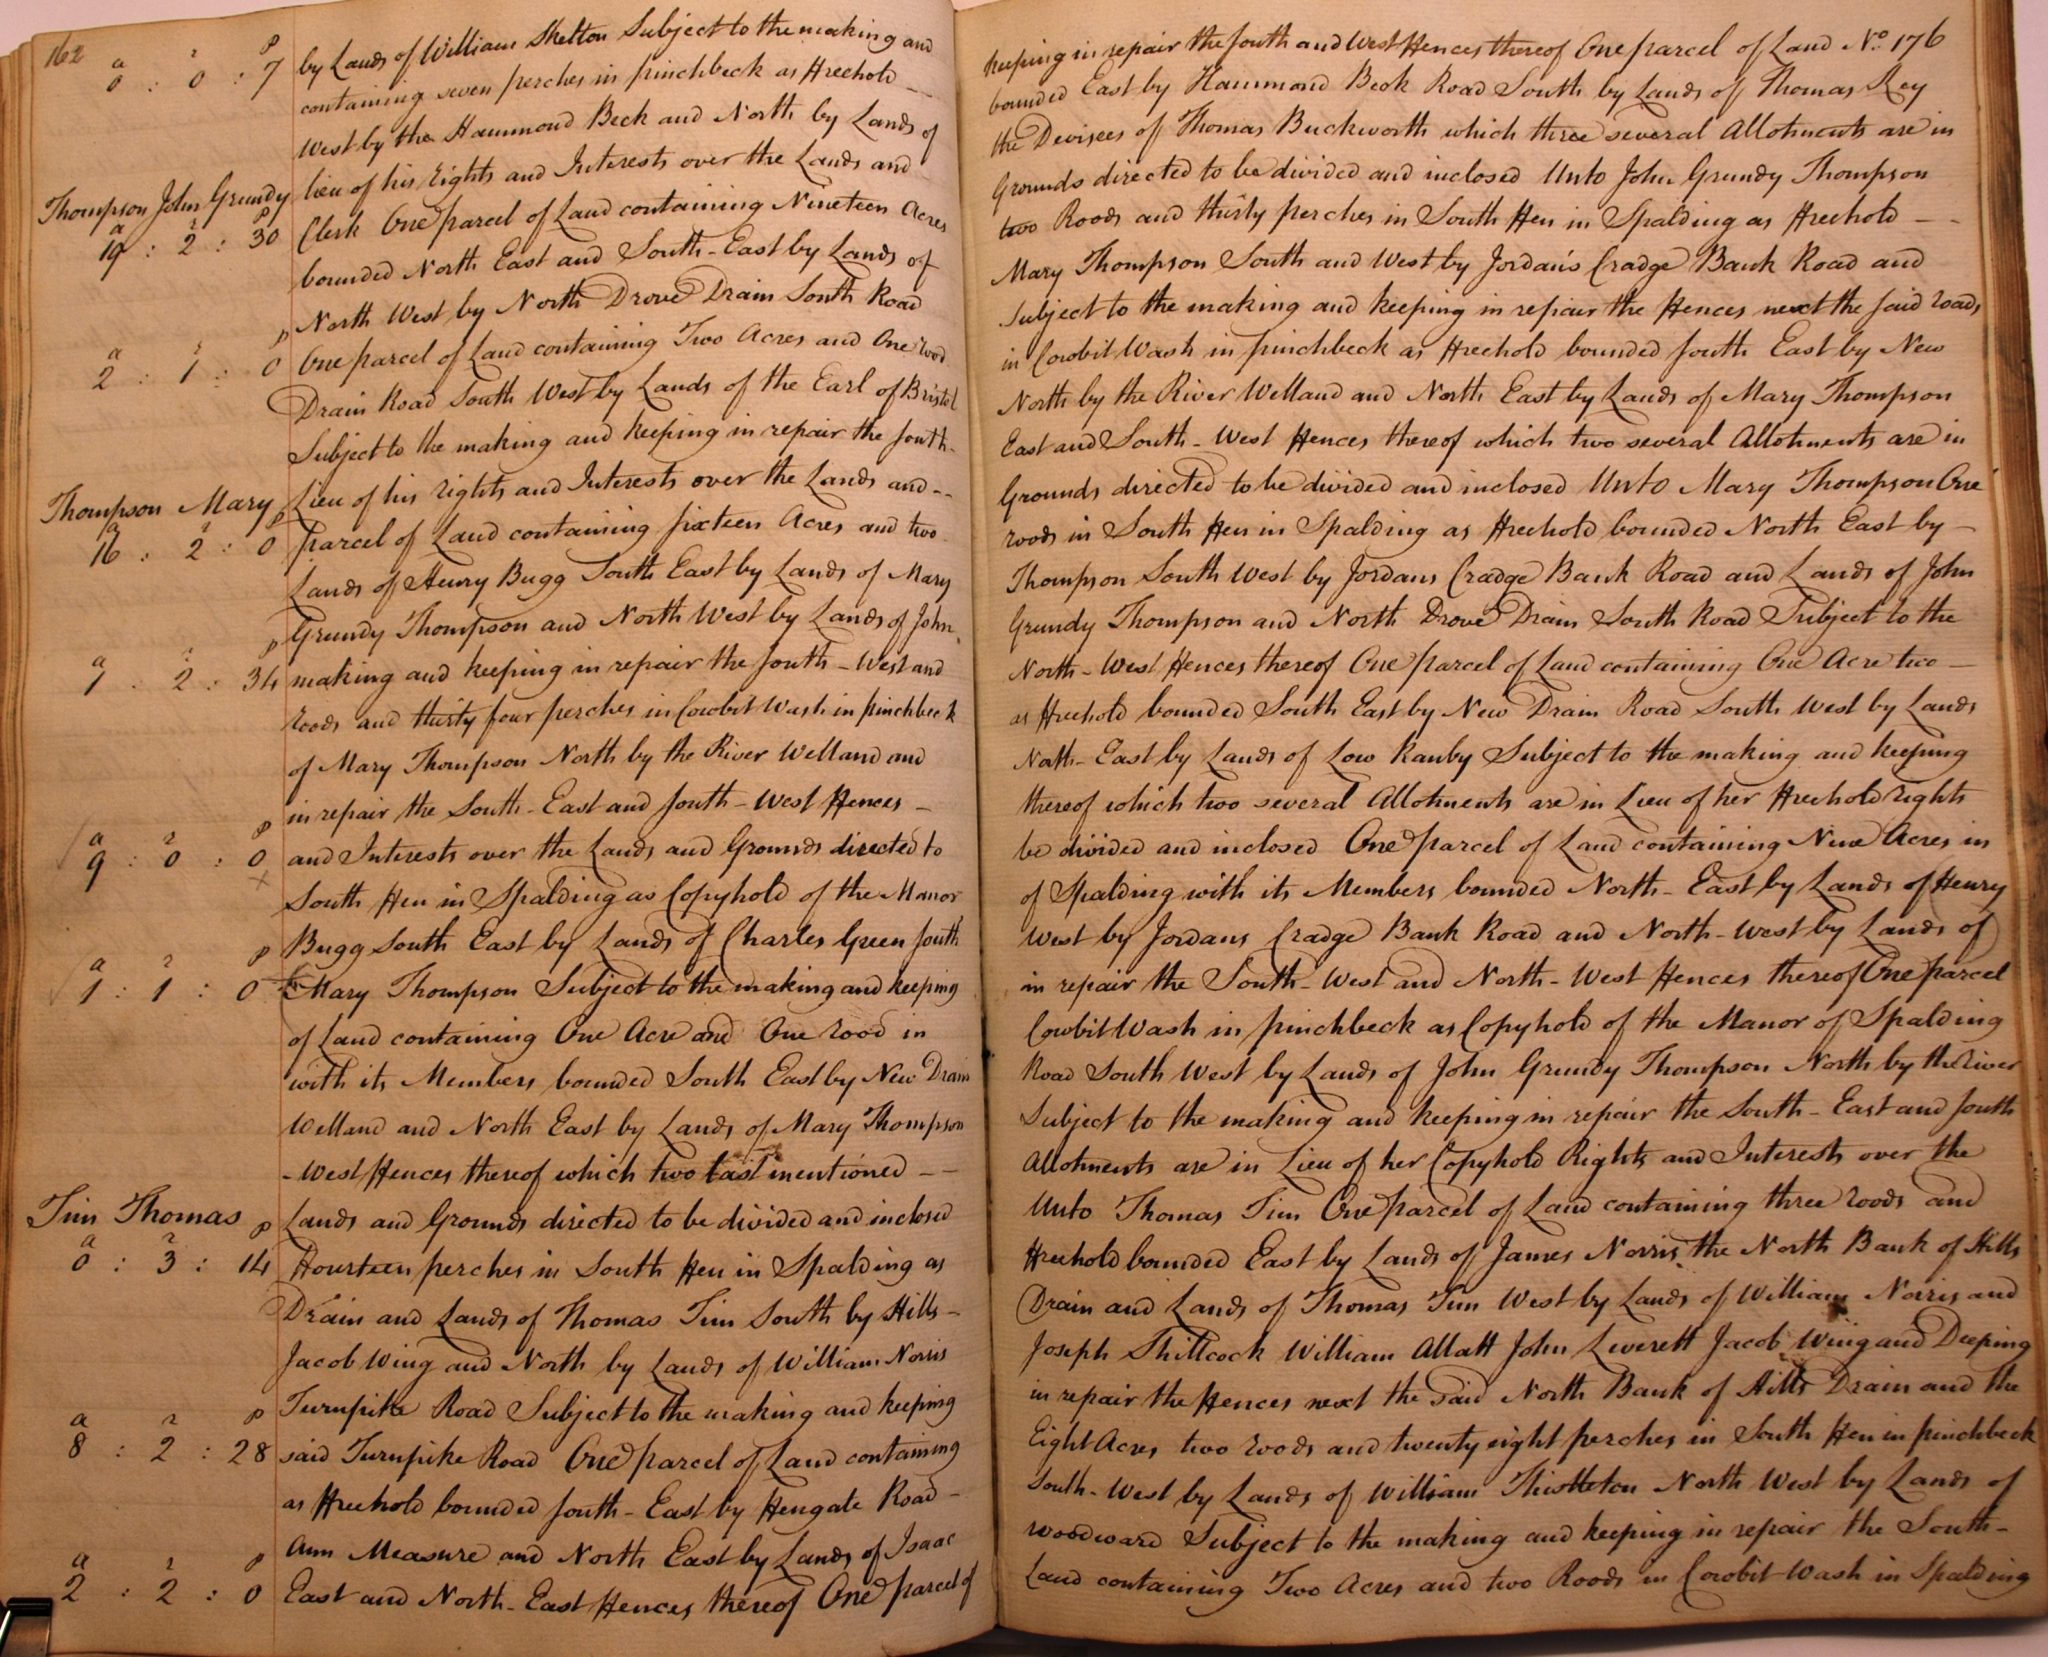 162
a r p
0 : 0 : 7
by Lands of William Skelton Subject to the making and keeping in repair the South and West Fences thereof One parcel of Land No. 176
containing seven perches in pinchbeck as Freehold -- bounded East by Hammond Beck Road South by Lands of Thomas Key
West by the Hammond Beck and North by Lands of the Devisees of Thomas Buckworth which three several Allotments are in
Thompson John Grundy
lieu of his Rights and Interests over the Lands and Grounds directed to be divided and inclosed Unto John Grundy Thompson
a r p
19 : 2 : 30
Clerk One parcel of Land containing Nineteen Acres two Roods and thirty perches in South Fen in Spalding as Freehold --
bounded North East and South-East by Lands of Mary Thompson South and West by Jordan's Cradge Bank Road and
North West by North Drove Drain South Road Subject to the making and keeping in repair the Fences next the said roads
a r p
2 : 1 : 0
One parcel of Land containing Two Acres and One rood in Cowbit Wash in pinchbeck as Freehold bounded South East by New
Drain Road South West by Lands of the Earl of Bristol North by the River Welland and North East by Lands of Mary Thompson
Subject to the making and keeping in repair the South- East and South-West Fences thereof which two several Allotments are in
Thompson Mary
Lieu of his rights and Interests over the Lands and -- Grounds directed to be divided and inclosed Unto Mary Thompson One
a r p
16 : 2 : 0
parcel of Land containing Sixteen Acres and two roods in South Fen in Spalding as Freehold bounded North East by -
Lands of Henry Bugg South East by Lands of Mary Thompson South West by Jordans Cradge Bank Road and Lands of John
Grundy Thompson and North West by Lands of John Grundy Thompson and North Drove Drain South Road Subject to the
a r p
1 : 2 : 34
making and keeping in repair the South-West and North-West Fences thereof One parcel of Land containing One Acre two -
roods and thirty four perches in Cowbit Wash in pinchbeck as Freehold bounded South East by New Drain Road South West by Lands
of Mary Thompson North by the River Welland and North-East by Lands of Low Ranby Subject to the making and keeping
in repair the South-East and South-West Fences - thereof which two several Allotments are in Lieu of her Freehold rights
a r p
9 : 0 : 0
and Interests over the Lands and Grounds directed to be divided and inclosed One parcel of Land containing Nine Acres in
South Fen in Spalding as Copyhold of the Manor of Spalding with its Members bounded North-East by Lands of Henry
Bugg South East by Lands of Charles Green South West by Jordans Cradge Bank Road and North-West by Lands of
a r p
1 : 1 : 0
Mary Thompson Subject to the making and keeping in repair the South-West and North-West Fences thereof One parcel
of Land containing One Acre and One rood in Cowbit Wash in pinchbeck as Copyhold of the Manor of Spalding
with its Members bounded South East by New Drain Road South West by Lands of John Grundy Thompson North by the River
Welland and North East by Lands of Mary Thompson Subject to the making and keeping in repair the South-East and South
-West Fences thereof which two last mentioned -- Allotments are in Lieu of her Copyhold Rights and Interests over the
Tim Thomas
Lands and Grounds directed to be divided and inclosed Unto Thomas Tim One parcel of Land containing three roods and
a r p
0 : 3 : 14
Fourteen perches in South Fen in Spalding as Freehold bounded East by Lands of James Norris the North Bank of Hills
Drain and Lands of Thomas Tim South by Hills - Drain and Lands of Thomas Tim West by Lands of William Norris and
Jacob Wing and North by Lands of William Norris Joseph Shillcock William Allatt John Leverett Jacob Wing and Deeping
Turnpike Road Subject to the making and keeping in repair the Fences next the said North Bank of Hills Drain and the
a r p
8 : 2 : 28
said Turnpike Road One parcel of Land containing Eight Acres two roods and twenty eight perches in South Fen in pinchbeck
as Freehold bounded South-East by Fengate Road - South-West by Lands of William Thistleton North West by Lands of
Ann Measure and North East by Lands of Isaac Woodward Subject to the making and keeping in repair the South-
a r p
2 : 2 : 0
East and North-East Fences thereof One parcel of Land containing Two Acres and two Roods in Cowbit Wash in Spalding